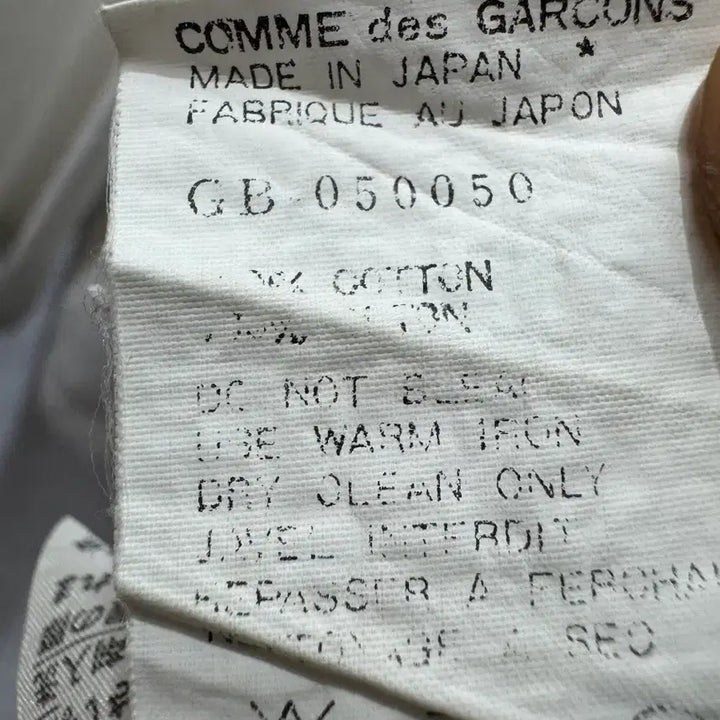 COMME des GARCONS
★
MADE IN JAPAN
FABRIQUE AU JAPON
GB-050050
COTTON
DO NOT
USE WARM IRON
DRY CLEAN ONLY
JAVEL INTERDIT
REPASSER A
A SEC
W